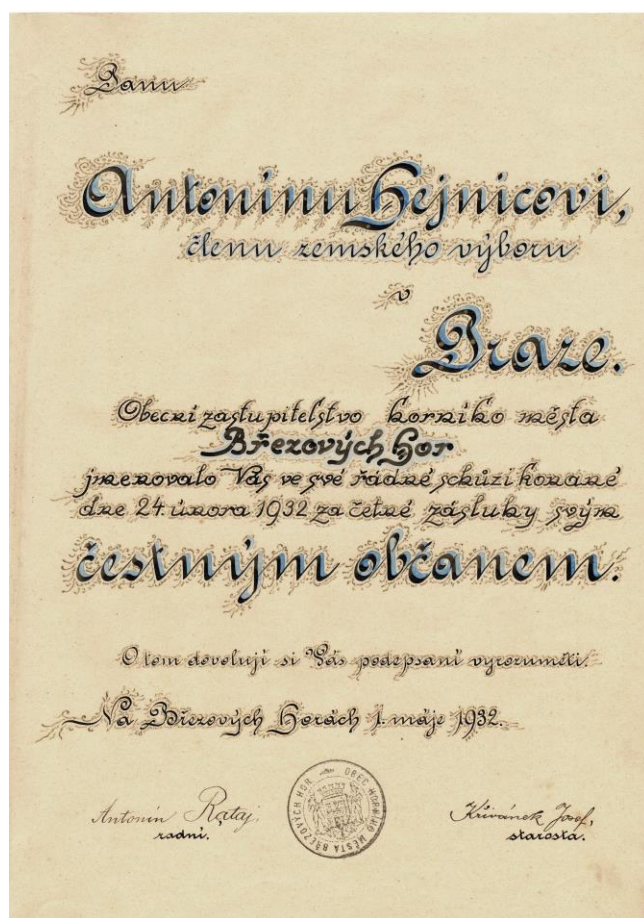 Panu
Antonínu Hejnicovi,
členu zemského výboru
v
Praze.
Obecní zastupitelstvo horního města
Březových Hor
jmenovalo Vás ve své řádné schůzi konané
dne 24 února 1932 za četné zásluhy svým
čestným občanem.
O tom dovolují si Vás podepsaní vyrozuměti.
Na Březových Horách 1. máje 1932.
OBEC HORNÍHO MĚSTA BŘEZOVÝCH HOR
Antonín Rataj,
radní.
Křivánek Josef,
starosta.